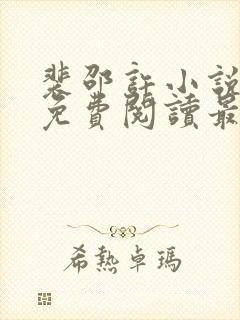 裴邵許小說
免費閱讀最
希熱卓瑪